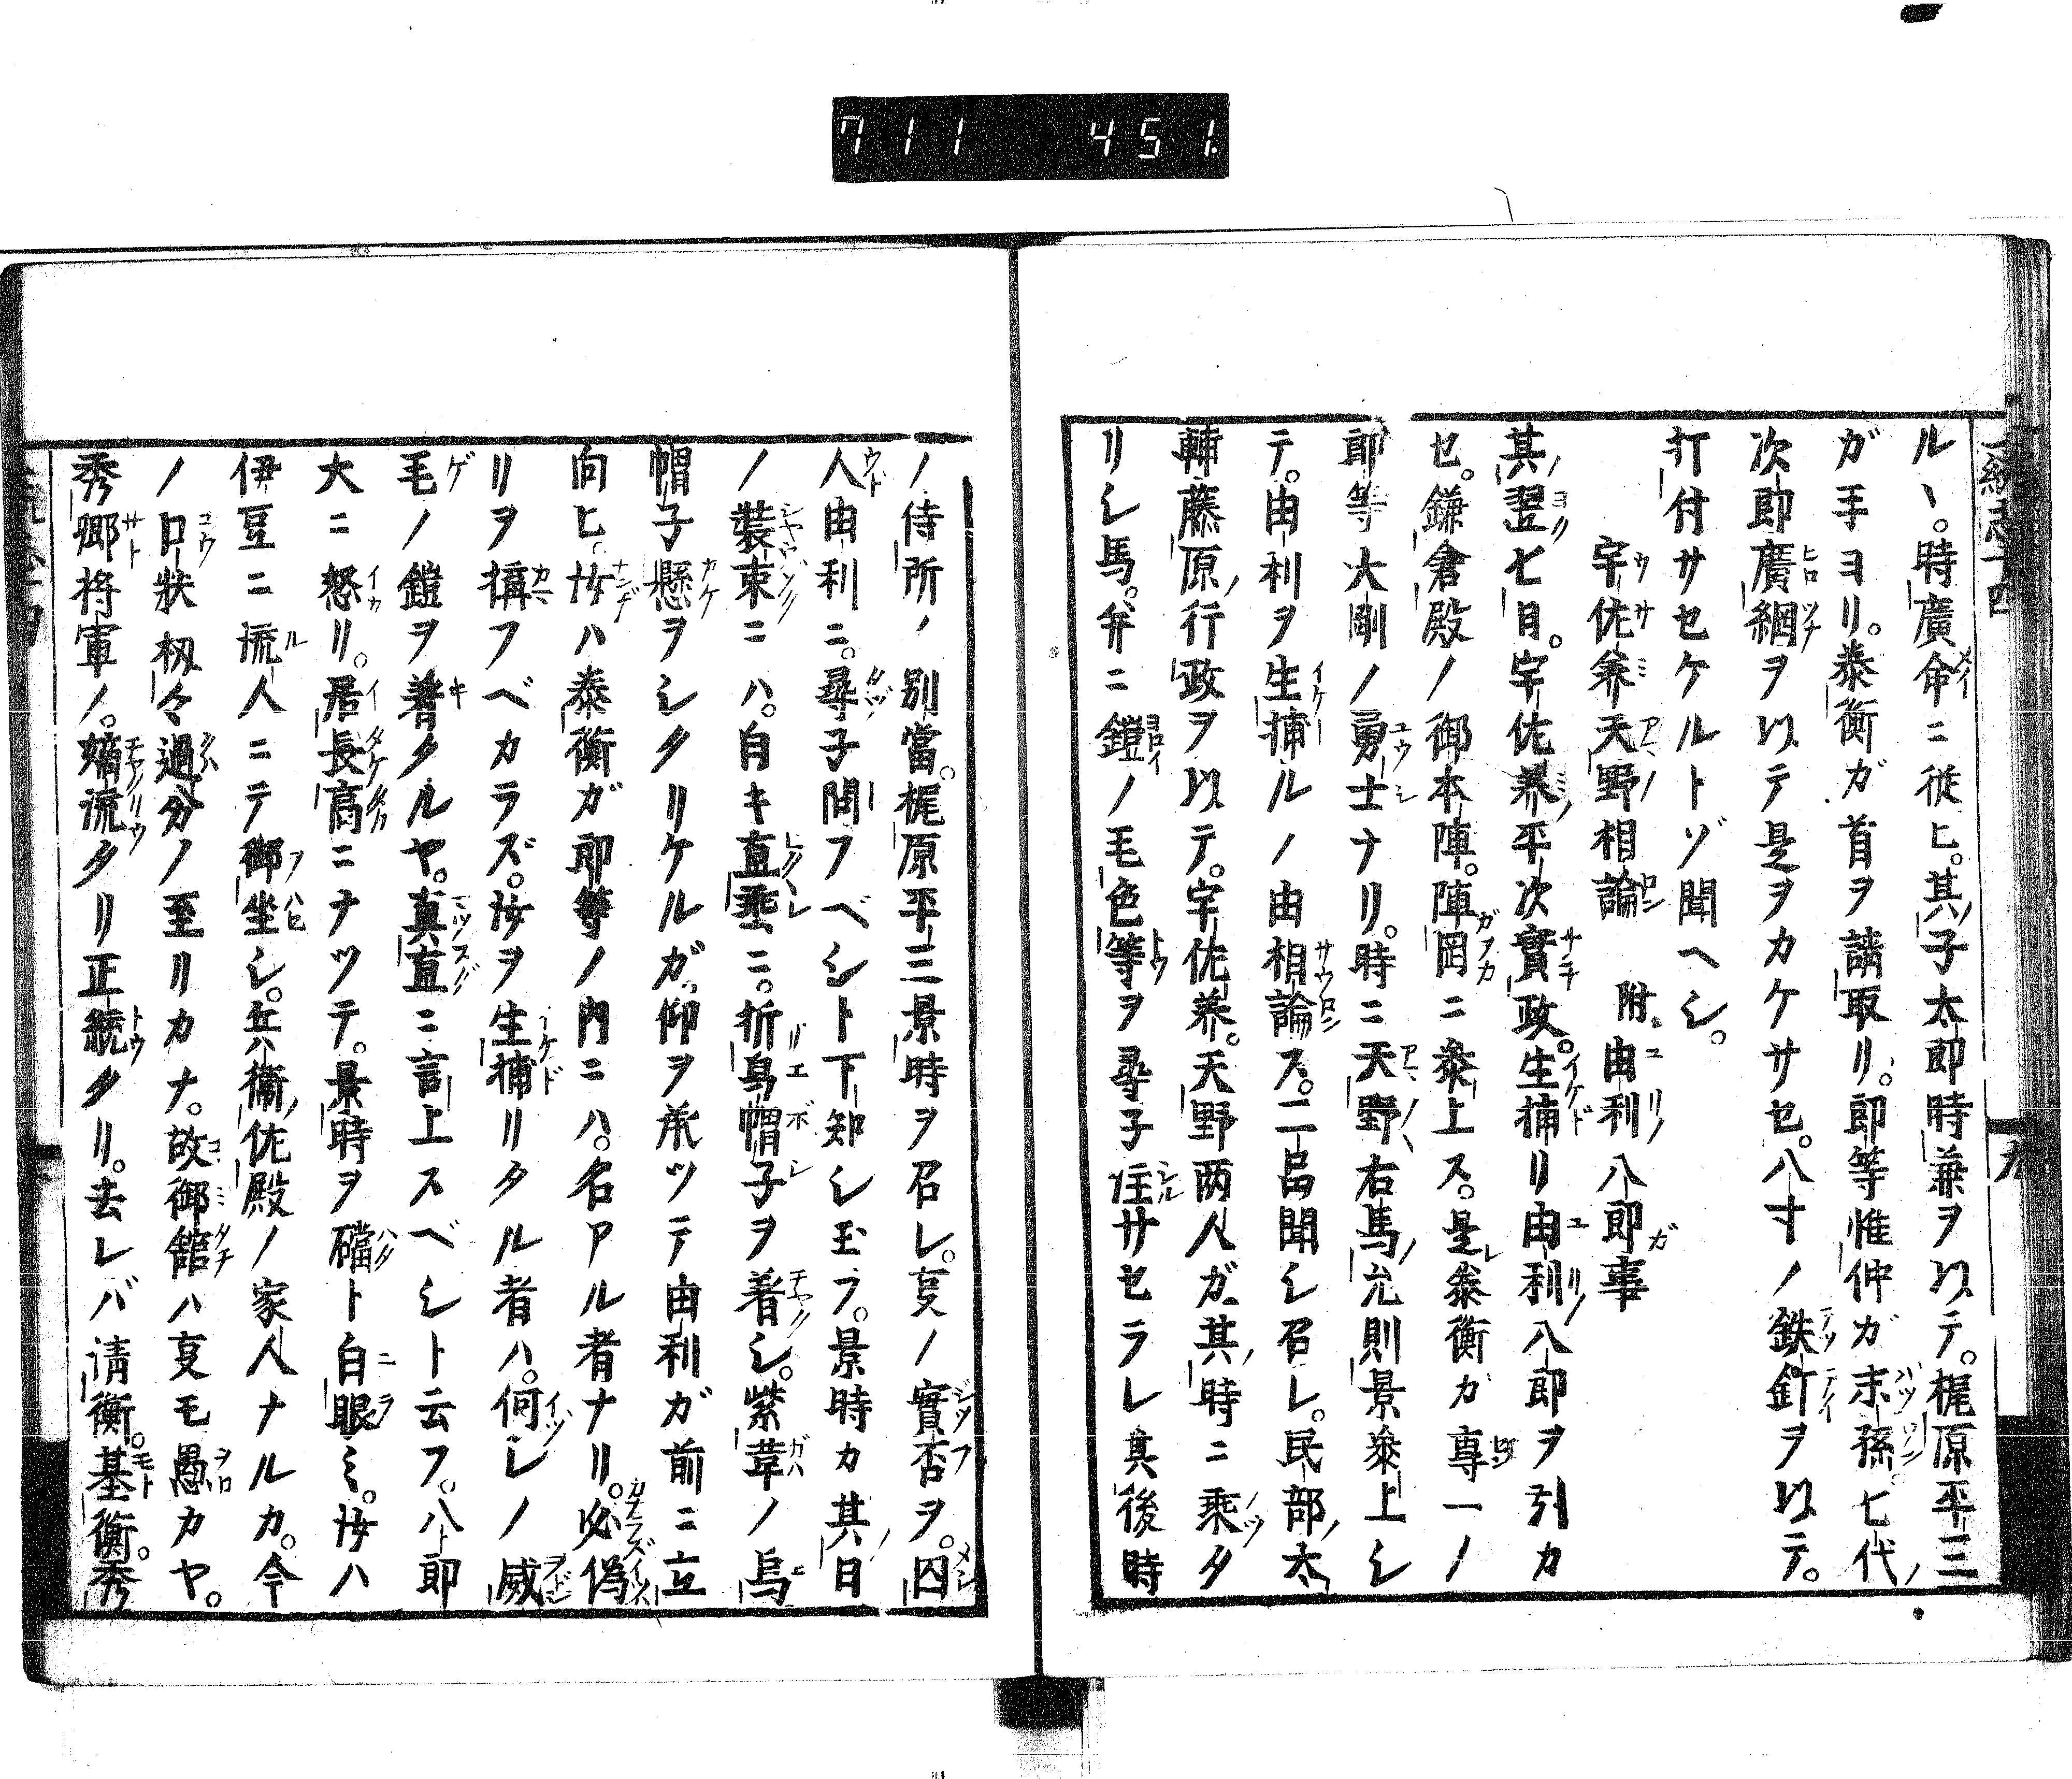 711 451
ル丶。時廣命ニ従ヒ。其子太郎時兼ヲ以テ。梶原平三
ガ手ヨリ。泰衡ガ首ヲ請取リ。郎等惟仲ガ末孫。七代
次郎廣綱ヲ以テ是ヲカケサセ。八寸ノ鉄釘ヲ以テ。
打付サセケルトゾ聞ヘシ。
宇佐美天野相論 附由利八郎事
其翌七日。宇佐美平次實政。生捕リ由利八郎ヲ引カ
セ。鎌倉殿ノ御本陣。陣岡ニ参上ス。是泰衡ガ専一ノ
郎等大剛ノ勇士ナリ。時ニ天野右馬允則景参上シ
テ。由利ヲ生捕ルノ由相論ス。二品聞シ召レ。民部太
輔藤原行政ヲ以テ。宇佐美。天野両人ガ。其時ニ乗タ
リシ馬。弁ニ鎧ノ毛色等ヲ尋子注サセラレ其後時
ノ侍所ノ別當。梶原平三景時ヲ召レ。叓ノ實否ヲ。囚
人由利ニ。尋子問フベシト下知シ玉フ。景時カ其日
ノ裝束ニハ。白キ直垂ニ。折烏帽子ヲ着シ。紫韋ノ烏
帽子懸ヲシタリケルガ。仰ヲ承ツテ由利ガ前ニ立
向ヒ。汝ハ泰衡ガ郎等ノ内ニハ。名アル者ナリ。必偽
リヲ搆フベカラズ。汝ヲ生捕リタル者ハ。何レノ威
毛ノ鎧ヲ着タルヤ。真直ニ言上スベシト云フ。八郎
大ニ怒リ。居長高ニナツテ。景時ヲ礑ト白眼ミ。汝ハ
伊豆ニ流人ニテ御坐シ。兵衞佐殿ノ家人ナルカ。今
ノ口状扨々過分ノ至リカナ。故御舘ハ叓モ愚カヤ。
秀郷将軍ノ。嫡流タリ正統タリ。去レバ清衡。基衡。秀